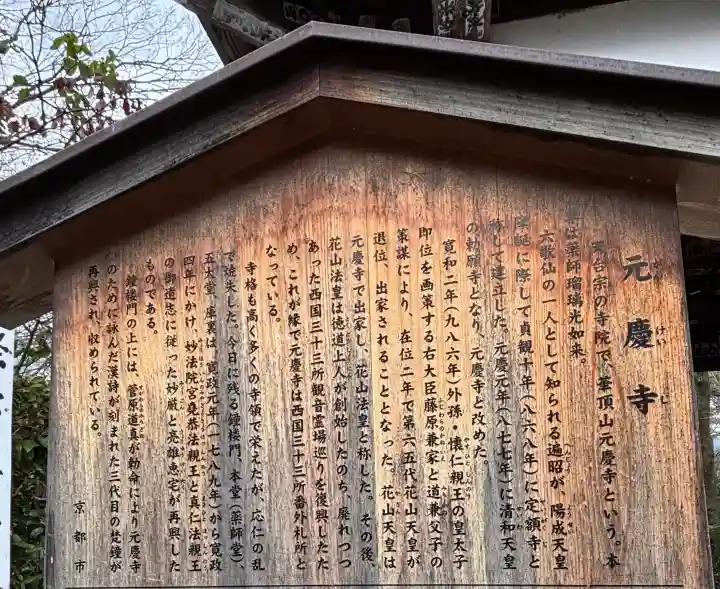 元慶寺
がん けい じ
天台宗の寺院で、華頂山元慶寺という。本
尊は薬師瑠璃光如来。
六歌仙の一人として知られる遍昭が、陽成天皇
降誕に際して貞観十年(八六八年)に定額寺と
称して建立した。元慶元年(八七七年)に清和天皇
の勅願寺となり、元慶寺と改めた。
寛和二年(九八六年)外孫・懐仁親王の皇太子
即位を画策する右大臣藤原兼家と道兼父子の
策謀により、在位二年で第六五代花山天皇が
退位、出家されることとなった。花山天皇は
元慶寺で出家し、花山法皇と称した。その後、
花山法皇は徳道上人が創始したのち、廃れつつ
あった西国三十三所観音霊場巡りを復興したた
め、これが縁で元慶寺は西国三十三所番外札所と
なっている。
寺格も高く多くの寺領で栄えたが、応仁の乱
で焼失した。今日に残る鐘楼門、本堂(薬師堂)、
五大堂、庫裏は、寛政元年(一七八九年)から寛政
四年にかけ、妙法院宮堯恭法親王と真仁法親王
の御道志に従った妙厳と亮雄恵宅が再興した
ものである。
鐘楼門の上には、菅原道真が勅命により元慶寺
のために詠んだ漢詩が刻まれた三代目の梵鐘が
再興され、収められている。
京都市